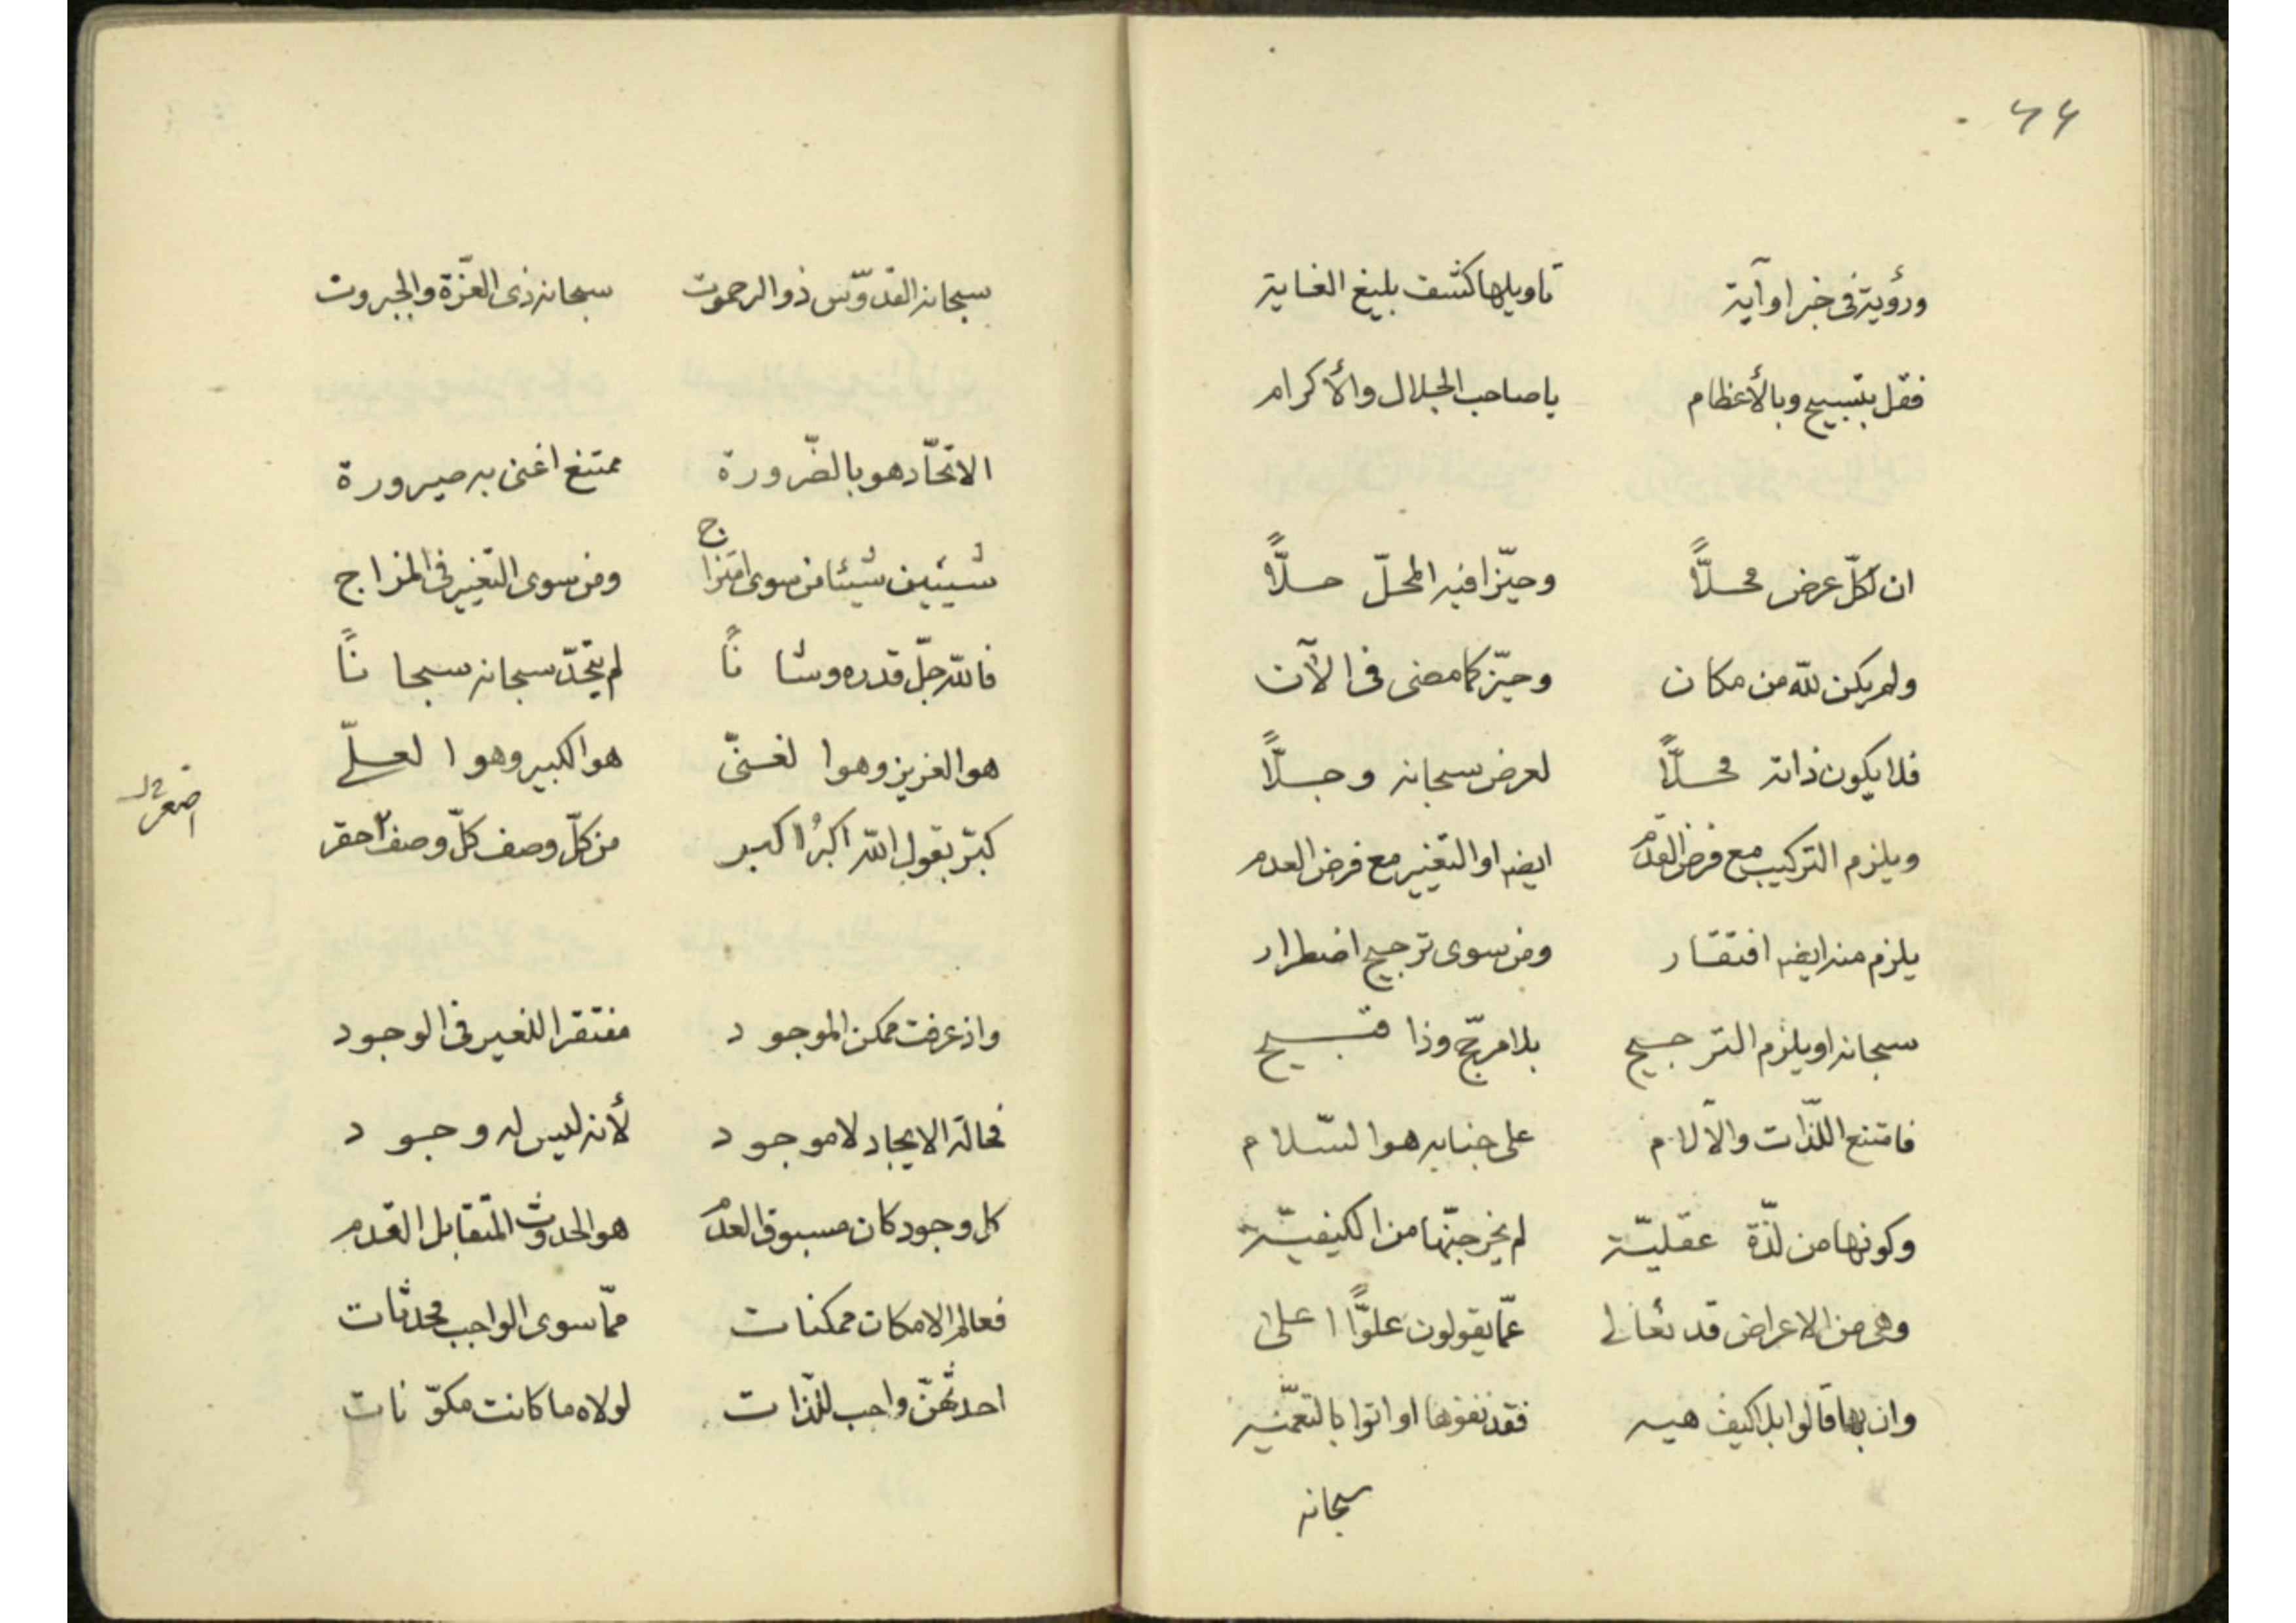 ٦٤
ورؤية فى خبر او آية تاويلها كشف بليغ الغاية
فقل بتسبيح وبالأعظام ياصاحب الجلال والأكرام
ان لكلّ عرض محلًّا وحيّزا فيه المحلّ حلًّا
ولم يكن للّه من مكان وحيّز كما مضى فى الآن
فلا يكون ذاته محلًّا لعرض سبحانه وجلًّا
ويلزم التركيب مع فرض القدم ايضه او التغيير مع فرض العدم
يلزم منه ايضه افتقار ومن سوى ترجيح اضطرار
سبحانه او يلزم الترجيح بلا مرجّح وذا قبيح
فامتنع اللّذات والآلام على جنابه هو السّلام
وكونها من لذّة عقليّة لم يخرجنّها من الكيفيّة
وهى من الاعراض قد تعالى عمّا يقولون علوًّا اعلى
وان بها قالوا بلا كيف هيه فقد نفوها او اتوا بالتعميه
سبحانه
سبحانه القدّوس ذو الرحموت سبحانه ذى العزّة والجبروت
الاتحّاد هو بالضّرورة ممتنع اعنى به صيرورة
شيئين شيئا من سوى امتزاج ومن سوى التغيير فى المزاج
فاللّه جلّ قدره وشانًا لم يتحدّ سبحانه سبحانًا
هو العزيز وهو الغنىّ هو الكبير وهو العلىّ
كبّر بقول اللّه اكبرُ اكبر من كلّ وصف كلّ وصف احقر
اصغر
واذ عرفت ممكن الموجود مفتقرا للغير فى الوجود
فحالة الايجاد لا موجود لأنه ليس له وجود
كل وجود كان مسبوق العدم هو الحدوث المتقابل القدم
فعالم الامكان ممكنات ممّا سوى الواجب محدثات
احدثهنّ واجب للذّات لولاه ما كانت مكوّنات